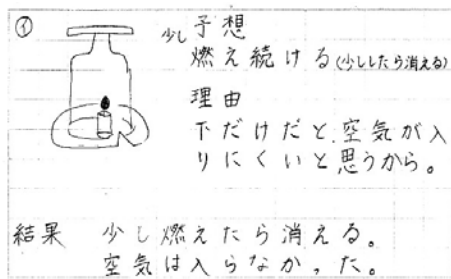 ①
少し予想
燃え続ける(少ししたら消える)
理由
下だけだと、空気が入
りにくいと思うから。
結果 少し燃えたら消える。
空気は入らなかった。